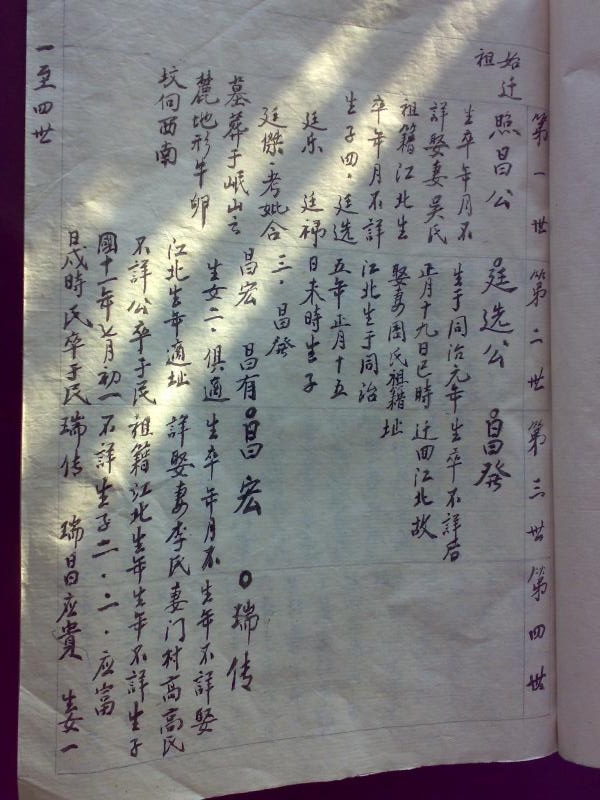 第一世
第二世
第三世
第四世
始迁
祖
照昌公
生卒年月不
詳娶妻吴氏
祖籍江北生
卒年月不詳
生子四·廷选
廷乐 廷禘
廷傑·考妣合
墓葬于岷山言
麓地形牛卵
坟向西南
廷选公
生于同治元年
正月十九日巳時
娶妻周氏祖籍
江北生于同治
五年正月十五
日未時生子
三·昌發
昌宏 昌有
生女二·俱適
江北生年適址
不詳公卒于民
國十一年七月初一
日戌時氏卒于民
昌發
生卒不詳后
迁回江北故
址
昌宏
生卒年月不
詳娶妻李氏
祖籍江北生年
不詳生子二·
瑞传 瑞昌
瑞传
生年不詳娶
妻门村高高氏
生年不詳生子
二·应富
应貴 生女一
一至四世